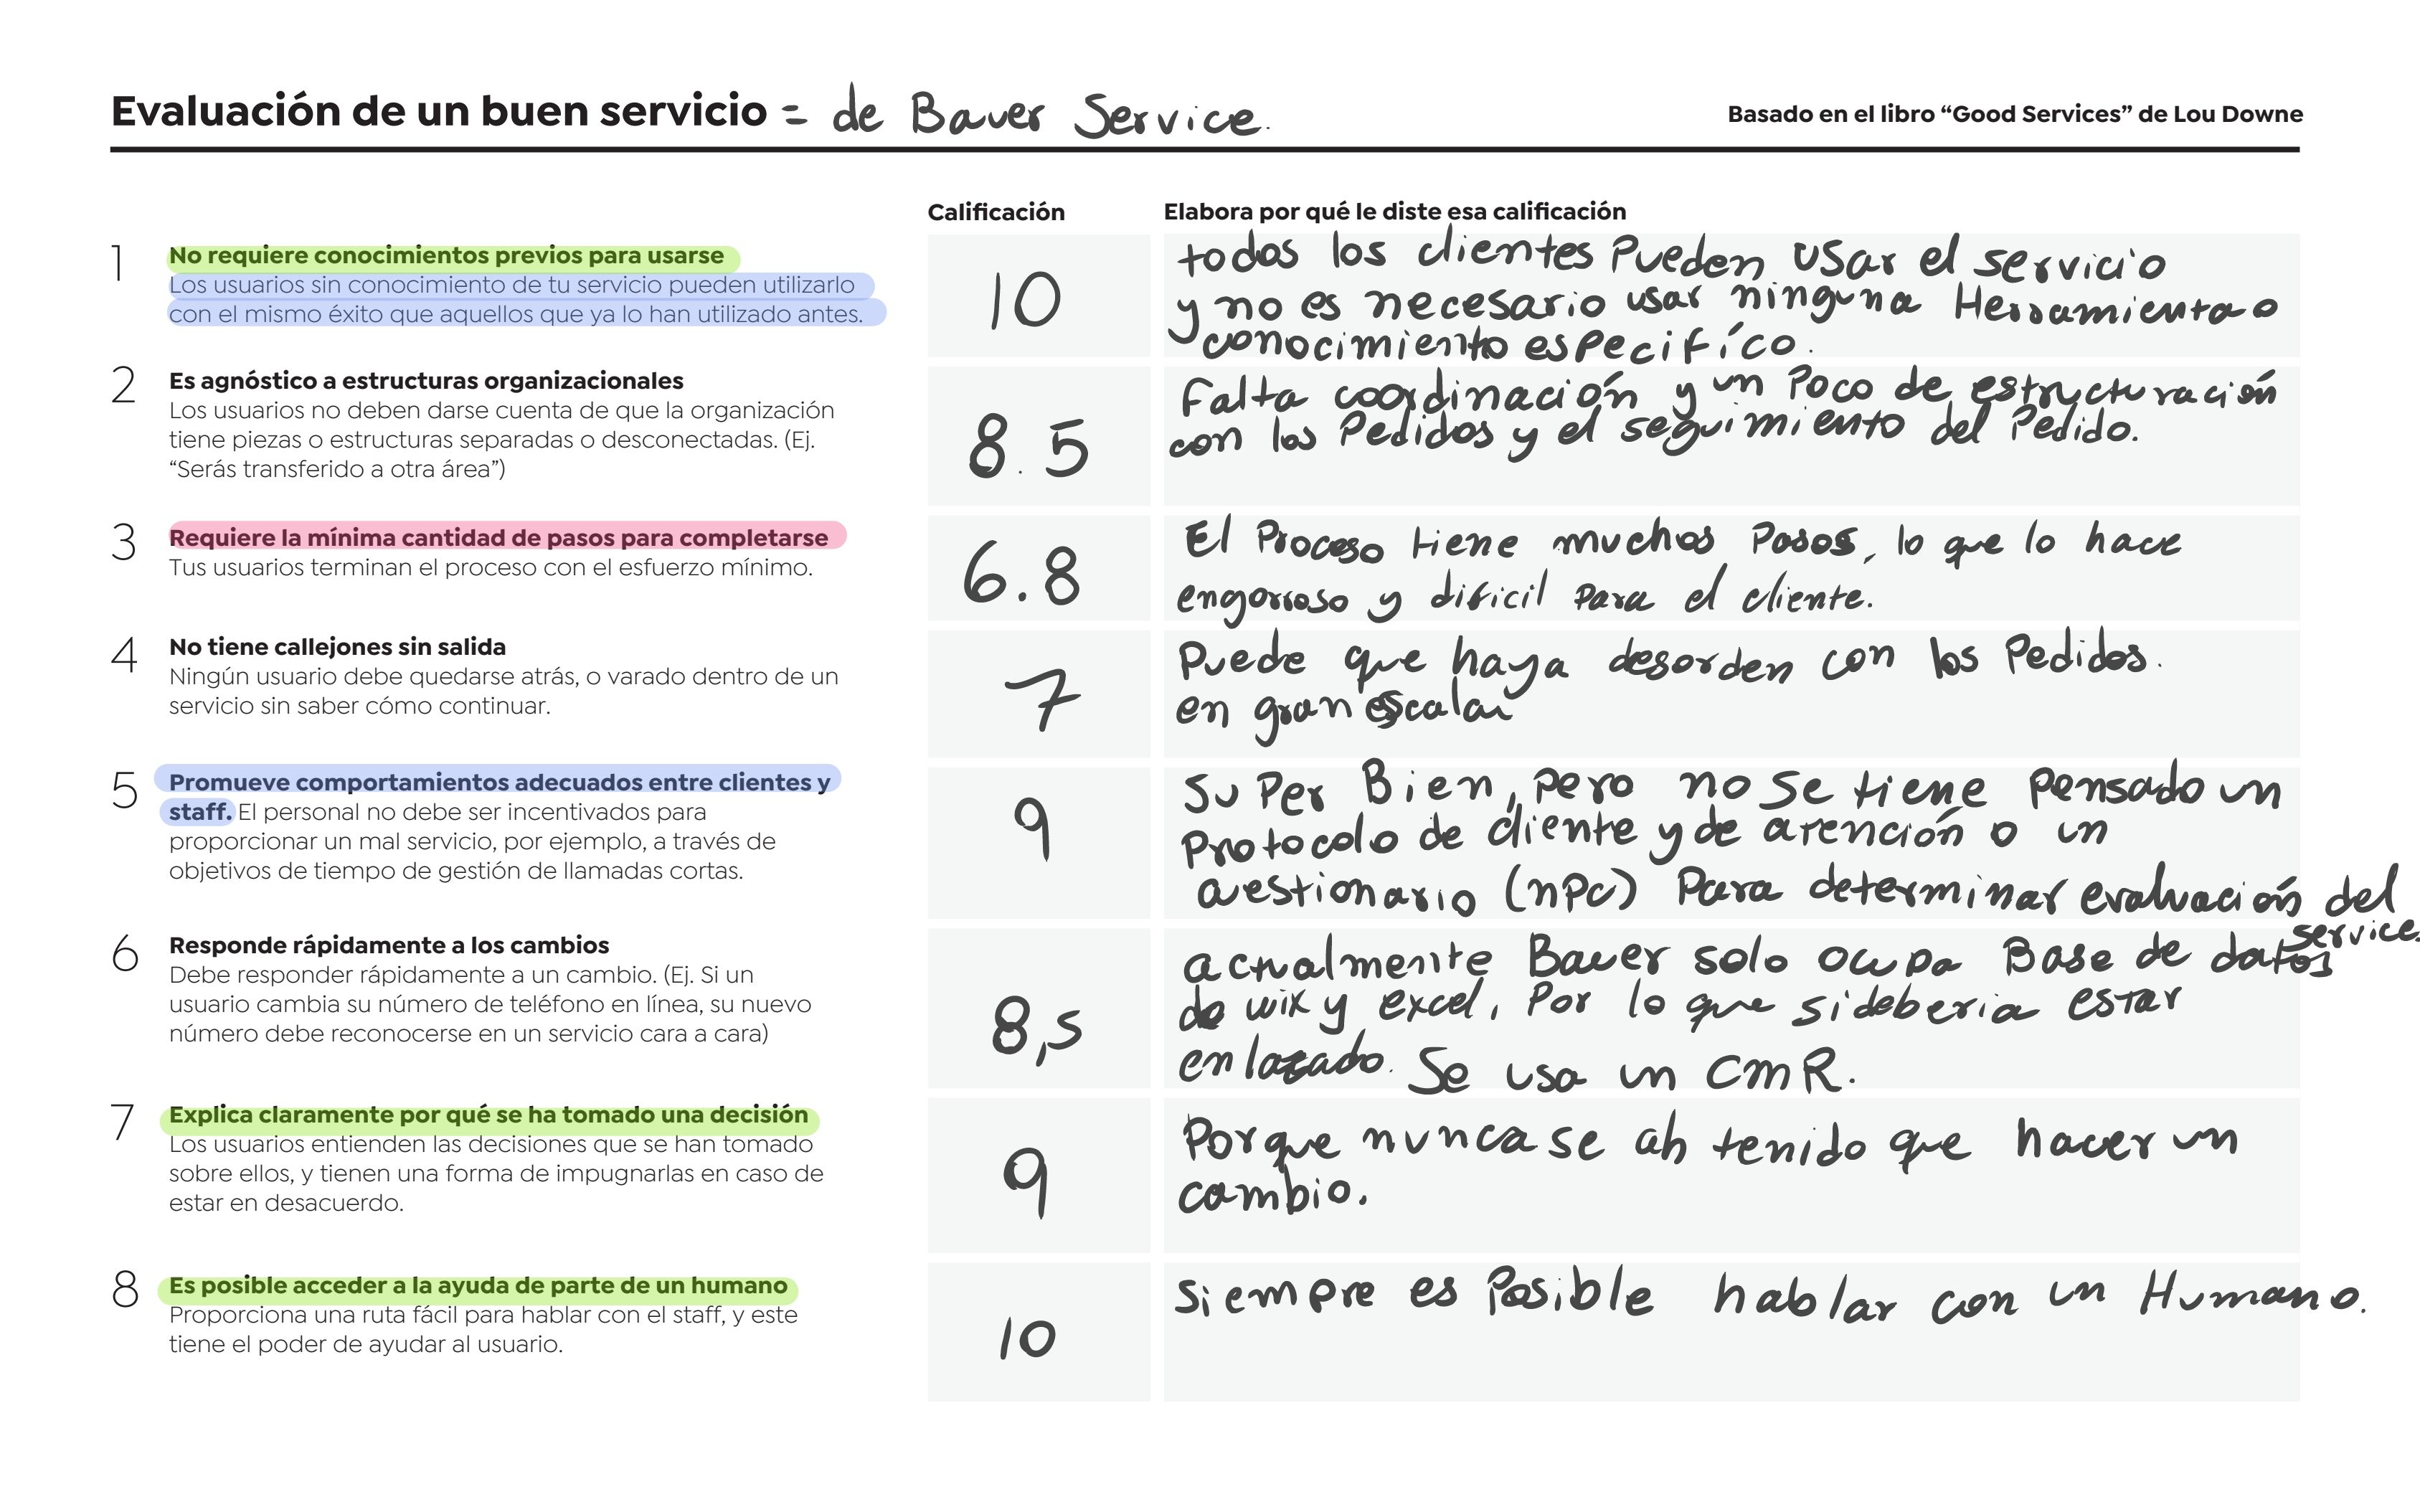 Evaluación de un buen servicio = de Bauer Service.
Basado en el libro “Good Services” de Lou Downe
Calificación
Elabora por qué le diste esa calificación
1
No requiere conocimientos previos para usarse
Los usuarios sin conocimiento de tu servicio pueden utilizarlo
con el mismo éxito que aquellos que ya lo han utilizado antes.
10
todos los clientes Pueden usar el servicio
y no es necesario usar ninguna Herramienta o
conocimiento especifíco.
2
Es agnóstico a estructuras organizacionales
Los usuarios no deben darse cuenta de que la organización
tiene piezas o estructuras separadas o desconectadas. (Ej.
“Serás transferido a otra área”)
8.5
Falta coordinación y un Poco de estructuración
con los Pedidos y el seguimiento del Pedido.
3
Requiere la mínima cantidad de pasos para completarse
Tus usuarios terminan el proceso con el esfuerzo mínimo.
6.8
El Proceso tiene muchos Pasos, lo que lo hace
engorroso y dificil Para el cliente.
4
No tiene callejones sin salida
Ningún usuario debe quedarse atrás, o varado dentro de un
servicio sin saber cómo continuar.
7
Puede que haya desorden con los Pedidos.
en gran escalar
5
Promueve comportamientos adecuados entre clientes y
staff. El personal no debe ser incentivados para
proporcionar un mal servicio, por ejemplo, a través de
objetivos de tiempo de gestión de llamadas cortas.
9
Super Bien, pero no se tiene Pensado un
Protocolo de cliente y de atención o un
cuestionario (nPc) Para determinar evaluación del
service.
6
Responde rápidamente a los cambios
Debe responder rápidamente a un cambio. (Ej. Si un
usuario cambia su número de teléfono en línea, su nuevo
número debe reconocerse en un servicio cara a cara)
8,5
actualmente Bauer solo ocupa Base de datos
de wix y excel, Por lo que si deberia estar
enlazado. Se usa un CMR.
7
Explica claramente por qué se ha tomado una decisión
Los usuarios entienden las decisiones que se han tomado
sobre ellos, y tienen una forma de impugnarlas en caso de
estar en desacuerdo.
9
Porque nunca se ah tenido que hacer un
cambio.
8
Es posible acceder a la ayuda de parte de un humano
Proporciona una ruta fácil para hablar con el staff, y este
tiene el poder de ayudar al usuario.
10
siempre es Posible hablar con un Humano.